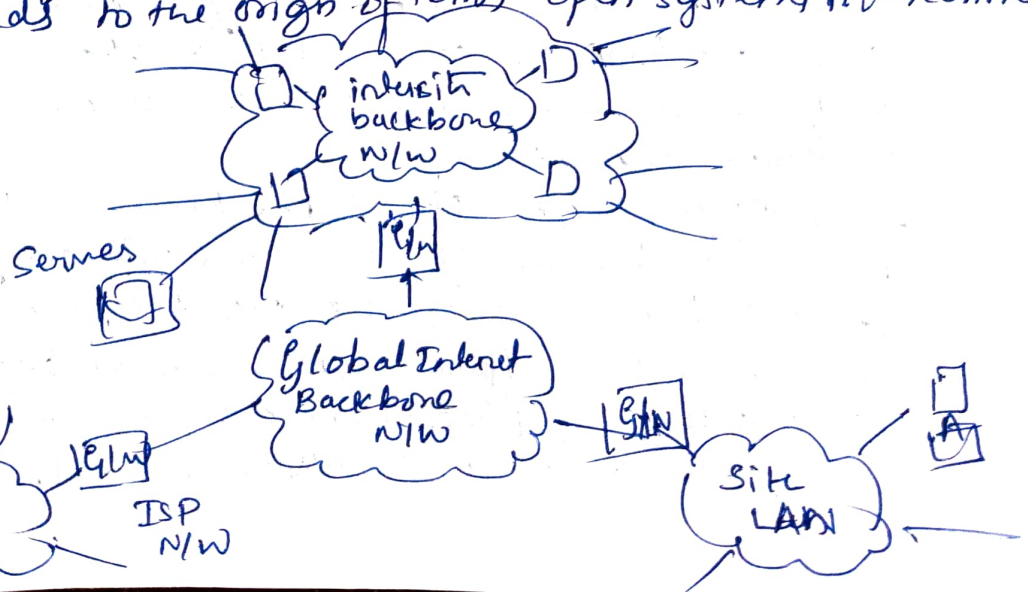 to the origin of open system
intersite
backbone
N/W
G/W
Servers
Global Internet
Backbone
N/W
G/W
G/W
Site
LAN
ISP
N/W